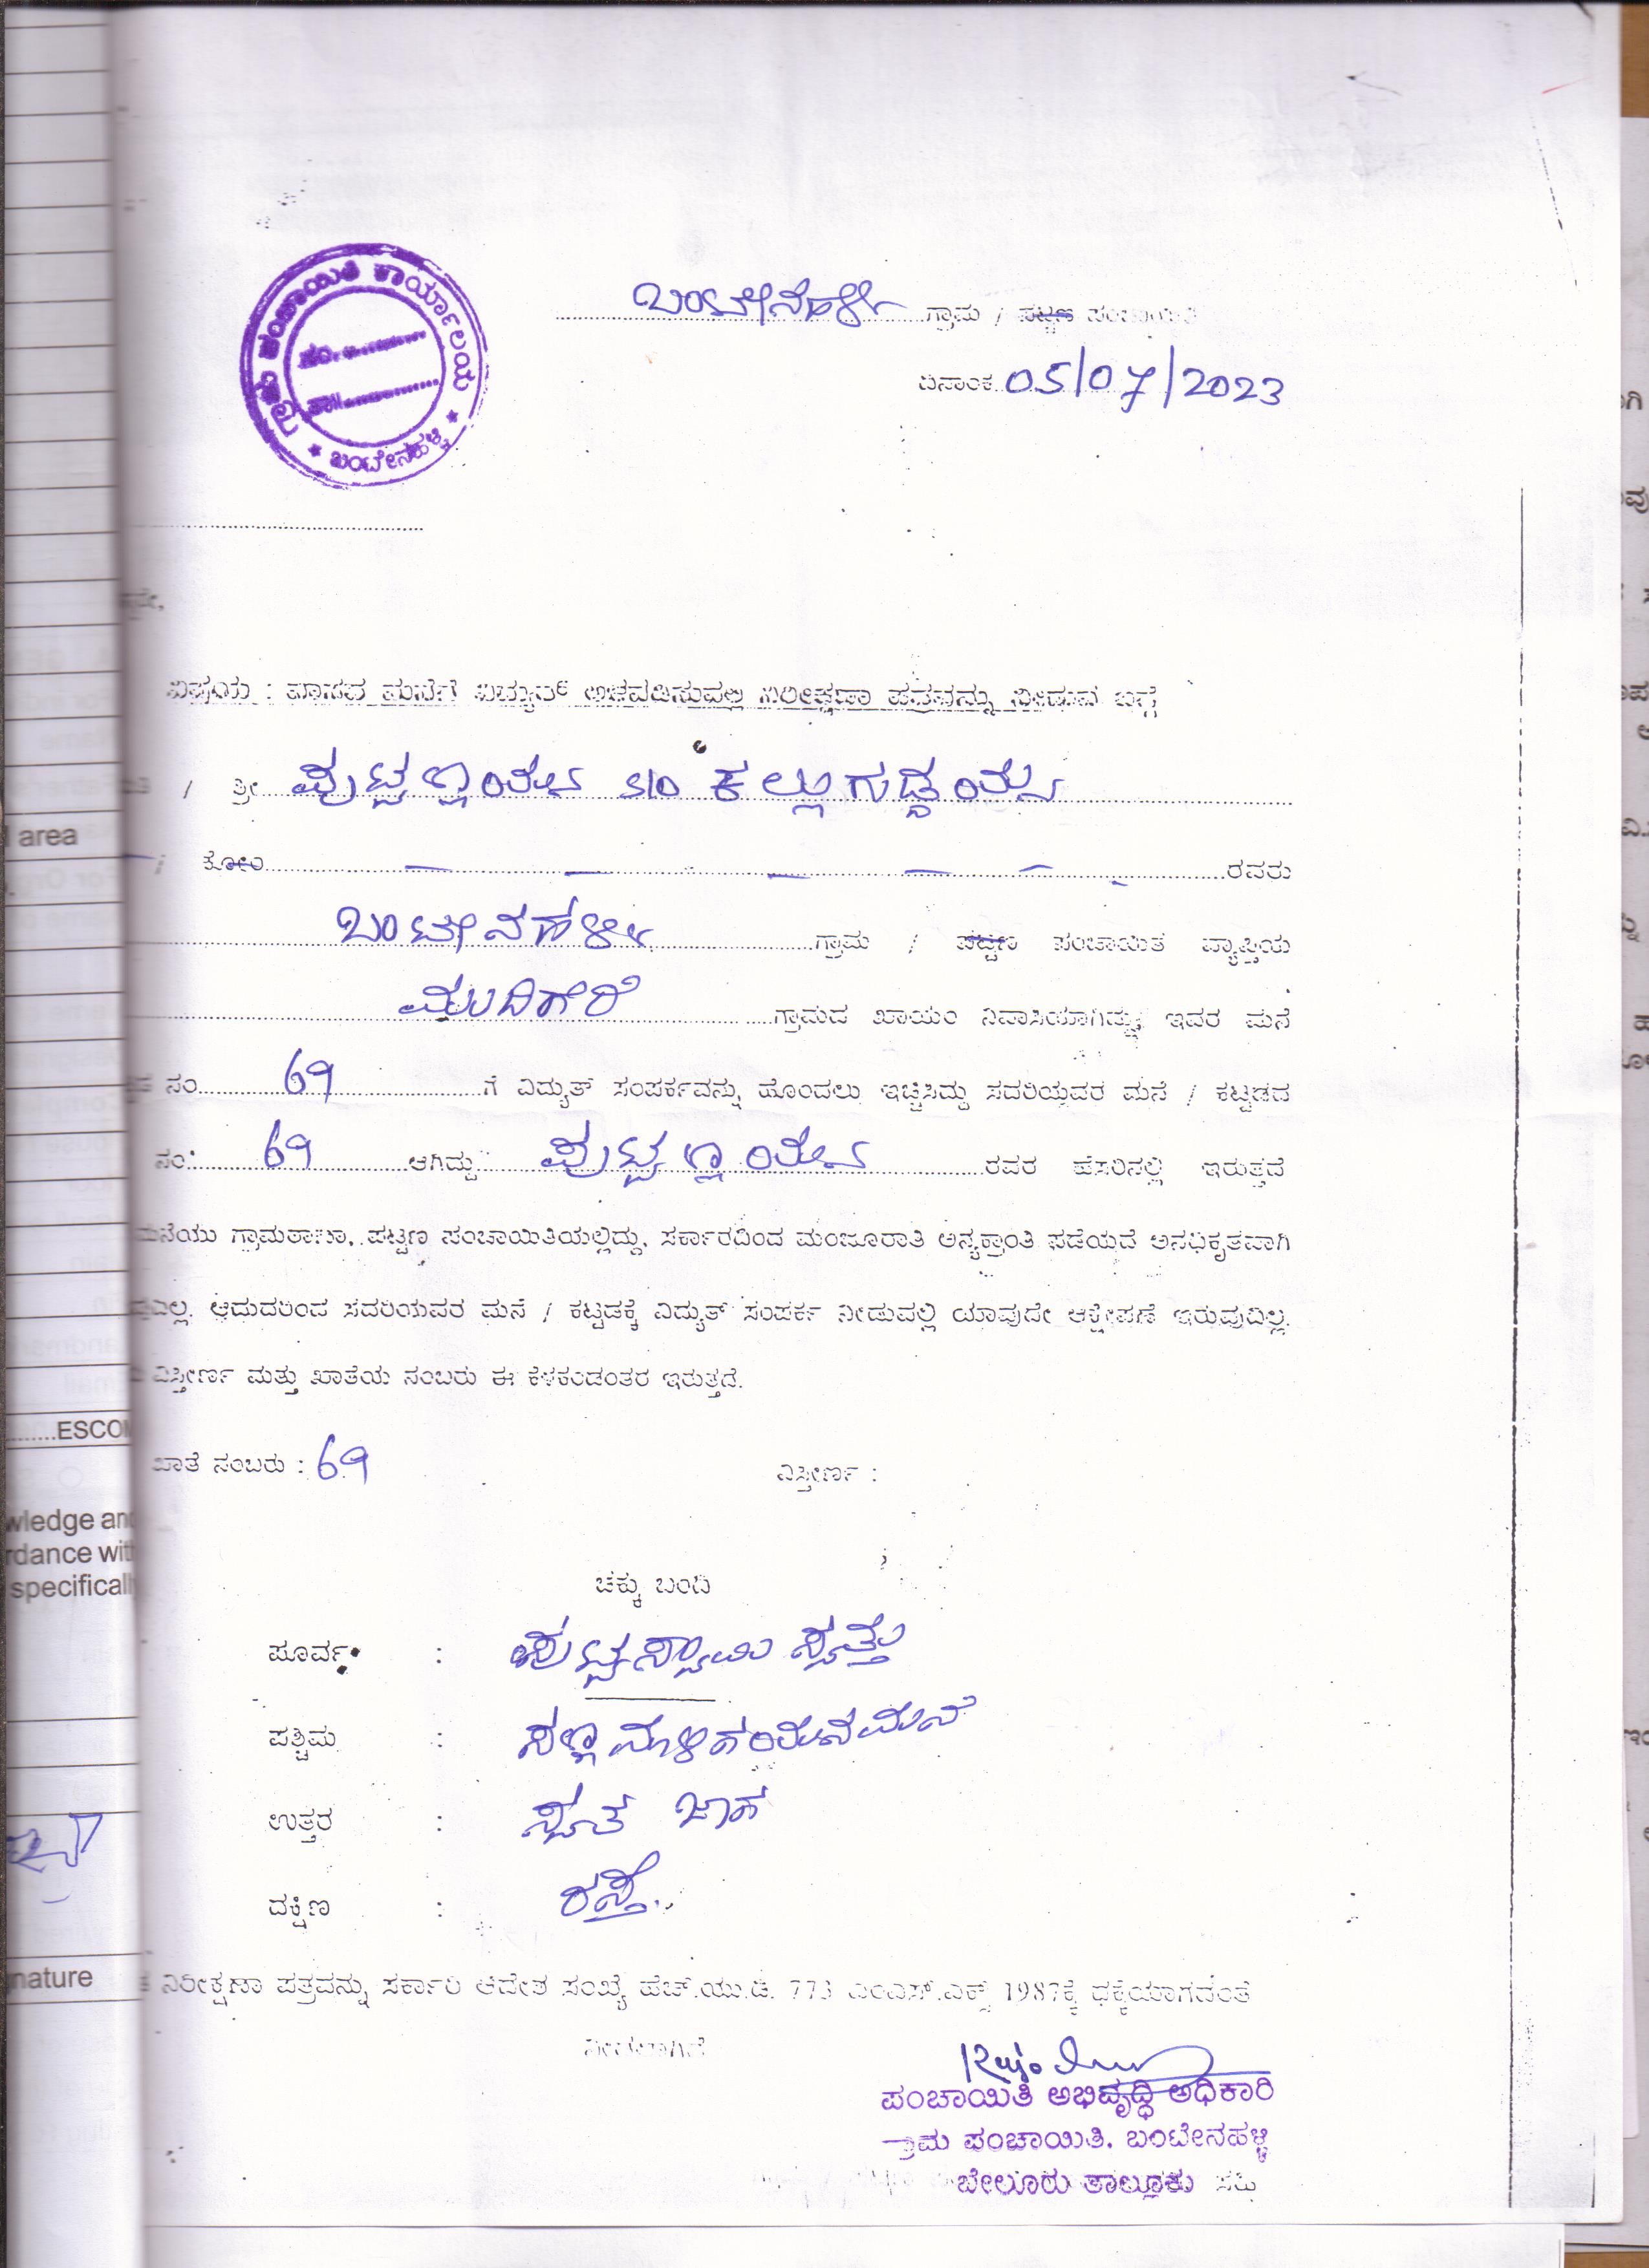 ಗ್ರಾಮ ಪಂಚಾಯಿತಿ ಕಾರ್ಯಾಲಯ
ನಂ.
ತಾ॥
* ಬಂಟೇನಹಳ್ಳಿ *
ಬಂಟೇನಹಳ್ಳಿ ಗ್ರಾಮ / ಪಟ್ಟಣ ಪಂಚಾಯಿತಿ
ದಿನಾಂಕ 05/07/2023
ವಿಷಯ : ವಾಸದ ಮನೆಗೆ ವಿದ್ಯುತ್ ಅಳವಡಿಸುವಲ್ಲಿ ನಿರೀಕ್ಷಣಾ ಪತ್ರವನ್ನು ನೀಡುವ ಬಗ್ಗೆ
/ ಶ್ರೀ ಪುಟ್ಟಣ್ಣಯ್ಯ S/O ಕಲ್ಲುಗುಡ್ಡಯ್ಯ
/ ಕೋಂ ರವರು
ಬಂಟೇನಹಳ್ಳಿ ಗ್ರಾಮ / ಪಟ್ಟಣ ಪಂಚಾಯಿತಿ ವ್ಯಾಪ್ತಿಯ
ಮುದಿಗೆರೆ ಗ್ರಾಮದ ಖಾಯಂ ನಿವಾಸಿಯಾಗಿದ್ದು, ಇವರ ಮನೆ
ನಂ 69 ಗೆ ವಿದ್ಯುತ್ ಸಂಪರ್ಕವನ್ನು ಹೊಂದಲು ಇಚ್ಚಿಸಿದ್ದು ಸದರಿಯವರ ಮನೆ / ಕಟ್ಟಡದ
ನಂ 69 ಆಗಿದ್ದು ಪುಟ್ಟಣ್ಣಯ್ಯ ರವರ ಹೆಸರಿನಲ್ಲಿ ಇರುತ್ತದೆ
ಮನೆಯು ಗ್ರಾಮಠಾಣಾ, ಪಟ್ಟಣ ಪಂಚಾಯಿತಿಯಲ್ಲಿದ್ದು, ಸರ್ಕಾರದಿಂದ ಮಂಜೂರಾತಿ ಅನ್ಯಕ್ರಾಂತಿ ಪಡೆಯದೆ ಅನಧಿಕೃತವಾಗಿ
ಆದುದರಿಂದ ಸದರಿಯವರ ಮನೆ / ಕಟ್ಟಡಕ್ಕೆ ವಿದ್ಯುತ್ ಸಂಪರ್ಕ ನೀಡುವಲ್ಲಿ ಯಾವುದೇ ಆಕ್ಷೇಪಣೆ ಇರುವುದಿಲ್ಲ.
ವಿಸ್ತೀರ್ಣ ಮತ್ತು ಖಾತೆಯ ನಂಬರು ಈ ಕೆಳಕಂಡಂತರ ಇರುತ್ತದೆ.
ಖಾತೆ ನಂಬರು : 69 ವಿಸ್ತೀರ್ಣ :
ಚಕ್ಕು ಬಂದಿ
ಪೂರ್ವ : ಪುಟ್ಟಸ್ವಾಮಿ ಸ್ವತ್ತು
ಪಶ್ಚಿಮ : ಸಣ್ಣ ಮಾಳಿಗಯ್ಯನ ಮನೆ
ಉತ್ತರ : ಸ್ವಂತ ಜಾಗ
ದಕ್ಷಿಣ : ರಸ್ತೆ.
ನಿರೀಕ್ಷಣಾ ಪತ್ರವನ್ನು ಸರ್ಕಾರಿ ಆದೇಶ ಸಂಖ್ಯೆ ಹೆಚ್.ಯು.ಡಿ. 773 ಎಂಎಸ್.ಎಕ್ಸ್ 1987ಕ್ಕೆ ಧಕ್ಕೆಯಾಗದಂತೆ
ನೀಡಲಾಗಿದೆ
ಪಂಚಾಯಿತಿ ಅಭಿವೃದ್ಧಿ ಅಧಿಕಾರಿ
ಗ್ರಾಮ ಪಂಚಾಯಿತಿ. ಬಂಟೇನಹಳ್ಳಿ
ಬೇಲೂರು ತಾಲ್ಲೂಕು ಸಹಿ
area
ESCOM
wledge and
rdance with
specifically
nature